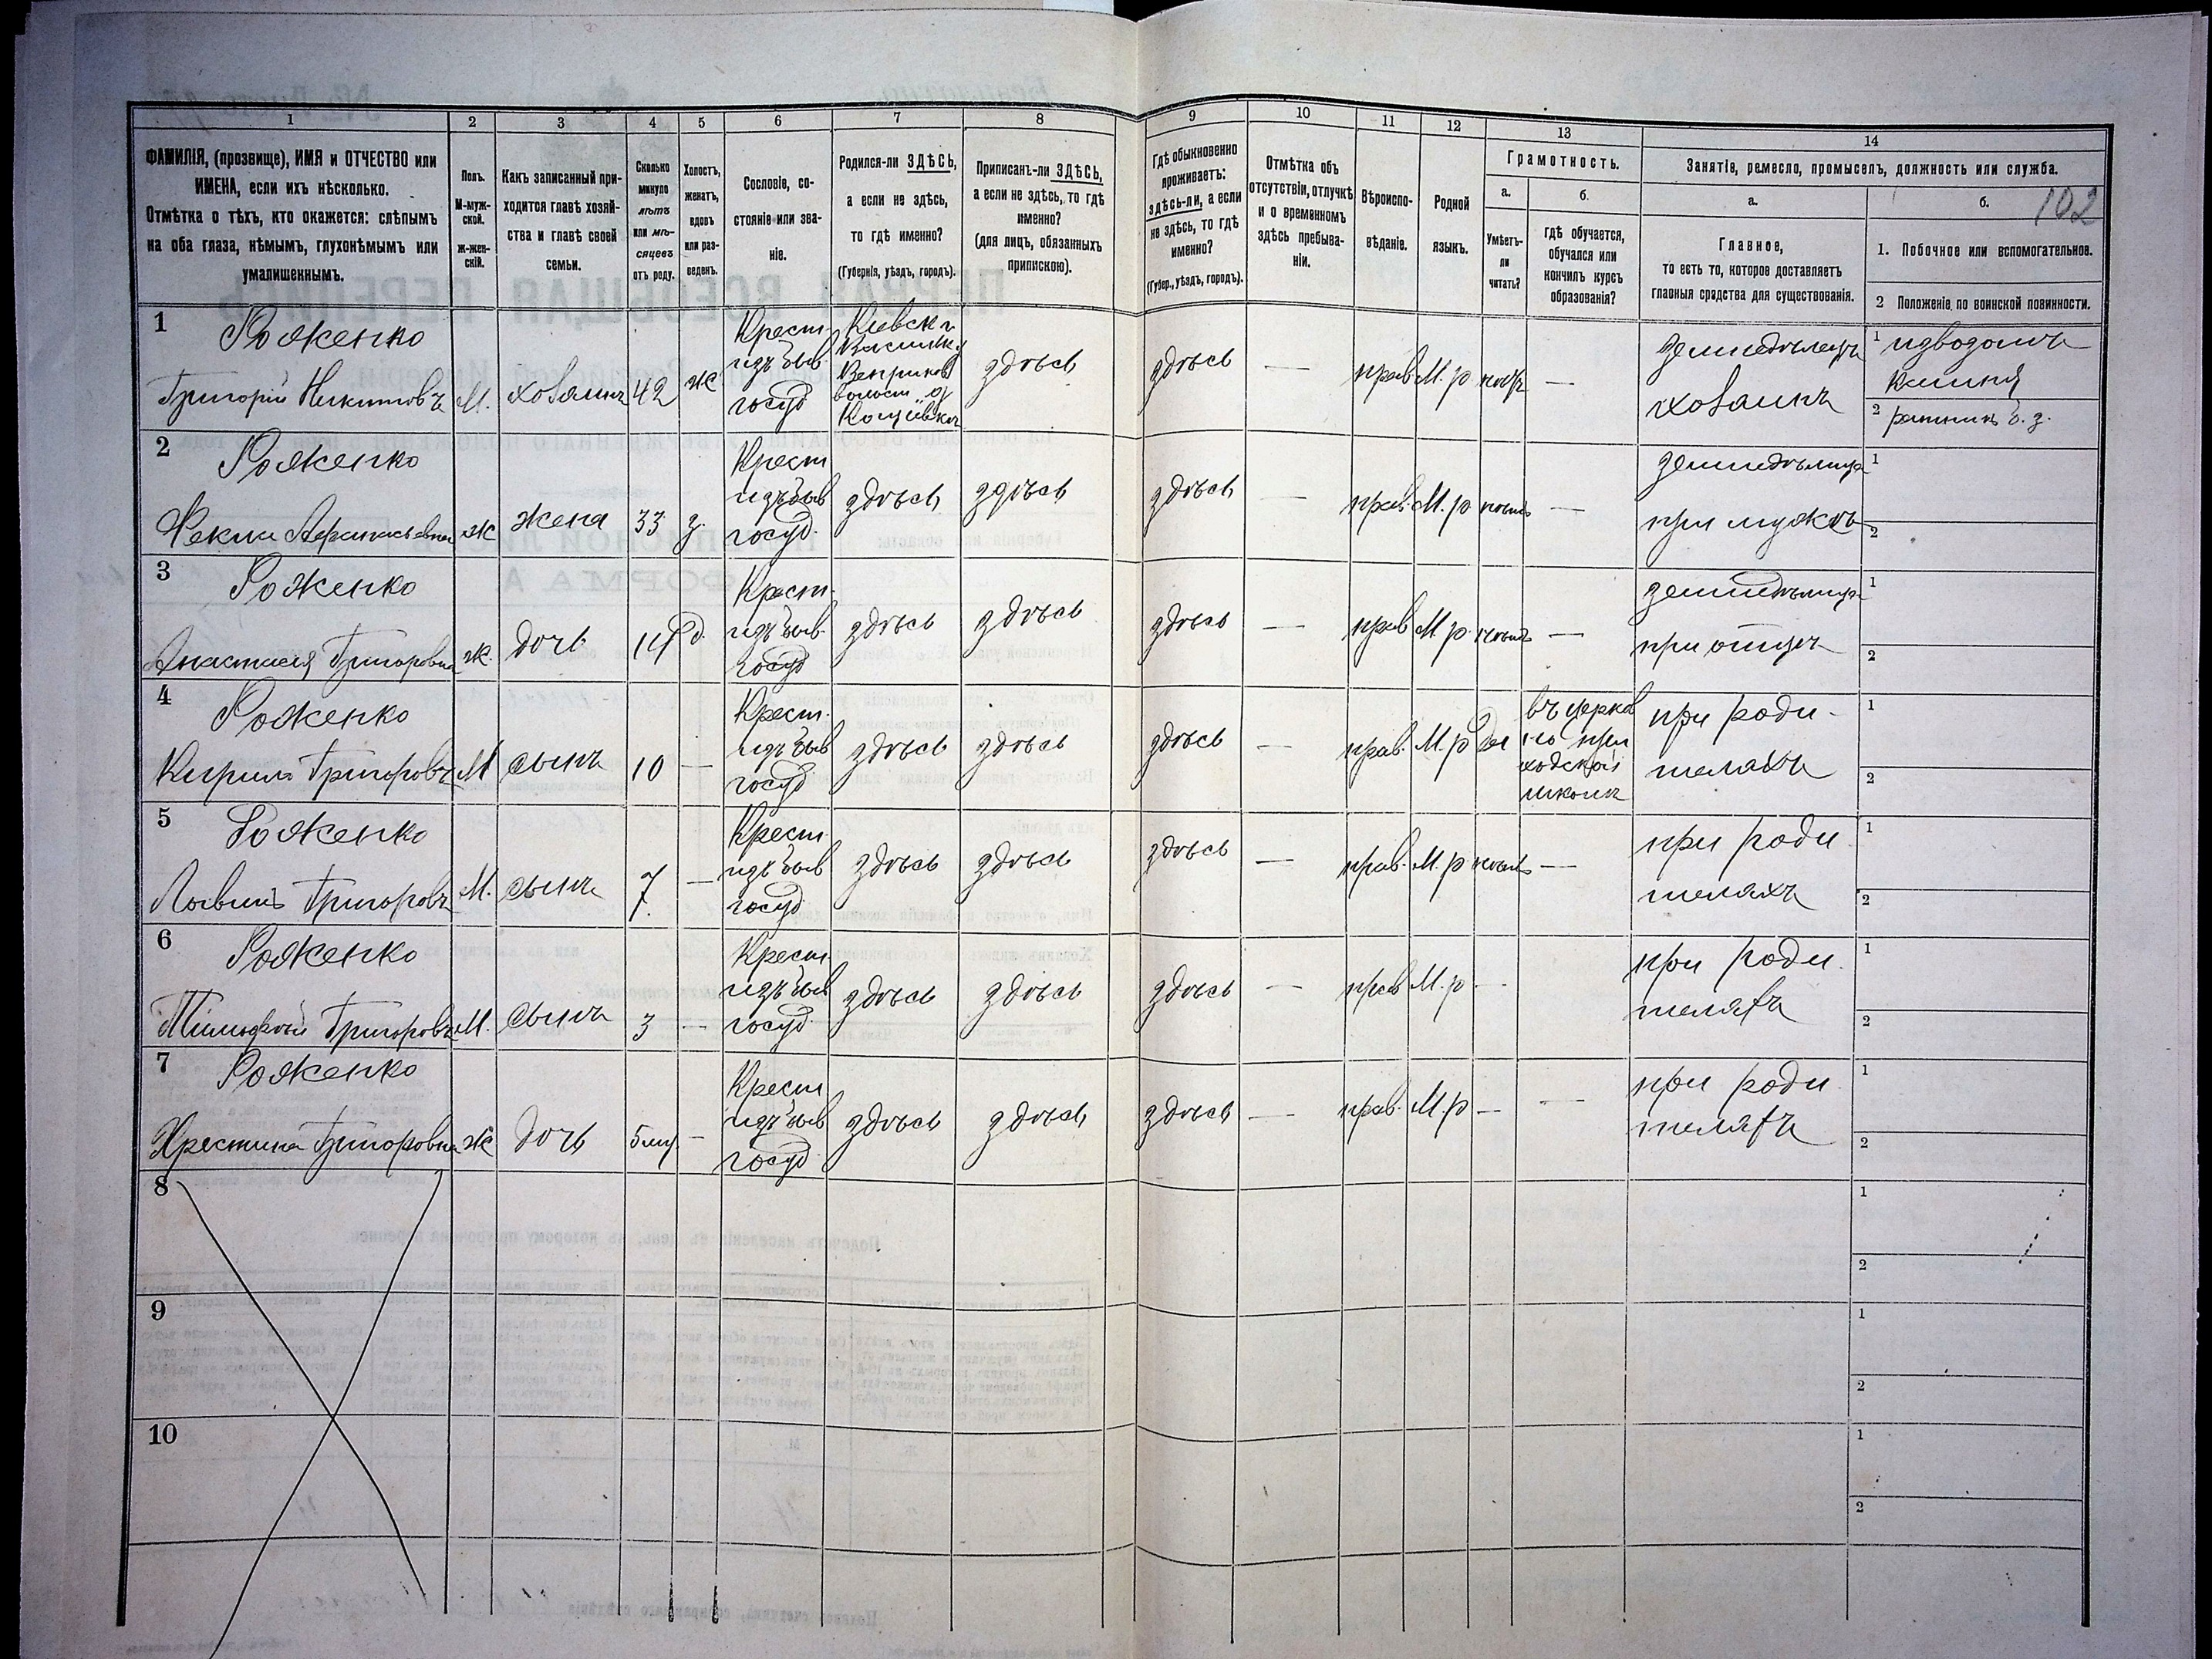 102
1 2 3 4 5 6 7 8 9 10 11 12 13 14
ФАМИЛІЯ, (прозвище), ИМЯ и ОТЧЕСТВО или
ИМЕНА, если ихъ нѣсколько.
Отмѣтка о тѣхъ, кто окажется: слѣпымъ
на оба глаза, нѣмымъ, глухонѣмымъ или
умалишеннымъ.
Полъ.
М-муж-
ской.
ж-жен-
скій.
Какъ записанный при-
ходится главѣ хозяй-
ства и главѣ своей
семьи.
Сколько
минуло
лѣтъ
или мѣ-
сяцевъ
отъ роду.
Холостъ,
женатъ,
вдовъ
или раз-
веденъ.
Сословіе, со-
стояніе или зва-
ніе.
Родился-ли ЗДѢСЬ,
а если не здѣсь,
то гдѣ именно?
(Губернія, уѣздъ, городъ).
Приписанъ-ли ЗДѢСЬ,
а если не здѣсь, то гдѣ
именно?
(для лицъ, обязанныхъ
припискою).
Гдѣ обыкновенно
проживаетъ:
здѣсь-ли, а если
не здѣсь, то гдѣ
именно?
(Губер., уѣздъ, городъ).
Отмѣтка объ
отсутствіи, отлучкѣ
и о временномъ
здѣсь пребыва-
ніи.
Вѣроиспо-
вѣданіе.
Родной
языкъ.
Грамотность.
а.
Умѣетъ-
ли
читать?
б.
гдѣ обучается,
обучался или
кончилъ курсъ
образованія?
Занятіе, ремесло, промыселъ, должность или служба.
а.
Главное,
то есть то, которое доставляетъ
главныя средства для существованія.
б.
1. Побочное или вспомогательное.
2 Положеніе по воинской повинности.
1 Роженко
Григорій Никитовъ
М.
хозаинъ
42
ж
Крест.
изъ быв
госуд
Киевск г.
волост
здѣсь
здѣсь
—
прав
М. р
—
земледѣлецъ
хозаинъ
1 изводомъ
камня
2 ратникъ
2 Роженко
Фекла Афанасьевна
ж
жена
33
з.
Крест
изъ быв
госуд.
здѣсь
здѣсь
здѣсь
—
прав.
М. р
—
при мужѣ
1
2
3 Роженко
Анастасія Григоровна
ж.
дочь
Крест.
изъ быв.
госуд
здѣсь
здѣсь
здѣсь
—
прав
М. р
—
при отцѣ
1
2
4 Роженко
Кирилъ Григоровъ
М
сынъ
10
—
Крест.
изъ быв
госуд
здѣсь
здѣсь
здѣсь
—
прав.
М. р
въ церков
но при
ходской
школѣ
при роди-
телахъ
1
2
5 Роженко
Логвинъ Григоровъ
М.
сынъ
7
—
Крест.
изъ быв
госуд
здѣсь
здѣсь
здѣсь
—
прав.
М. р
—
при роди
телахъ
1
2
6 Роженко
Тимофей Григоровъ
М.
сынъ
3
—
Крест
изъ быв
госуд.
здѣсь
здѣсь
здѣсь
—
прав
М. р
—
при роди.
теляхъ
1
2
7 Роженко
Христина Григоровна
ж
дочь
5 мц.
-
Крест
изъ быв
госуд
здѣсь
здѣсь
здѣсь
—
прав.
М. р
—
—
при роди.
теляхъ
1
2
8
1
2
9
1
2
10
1
2